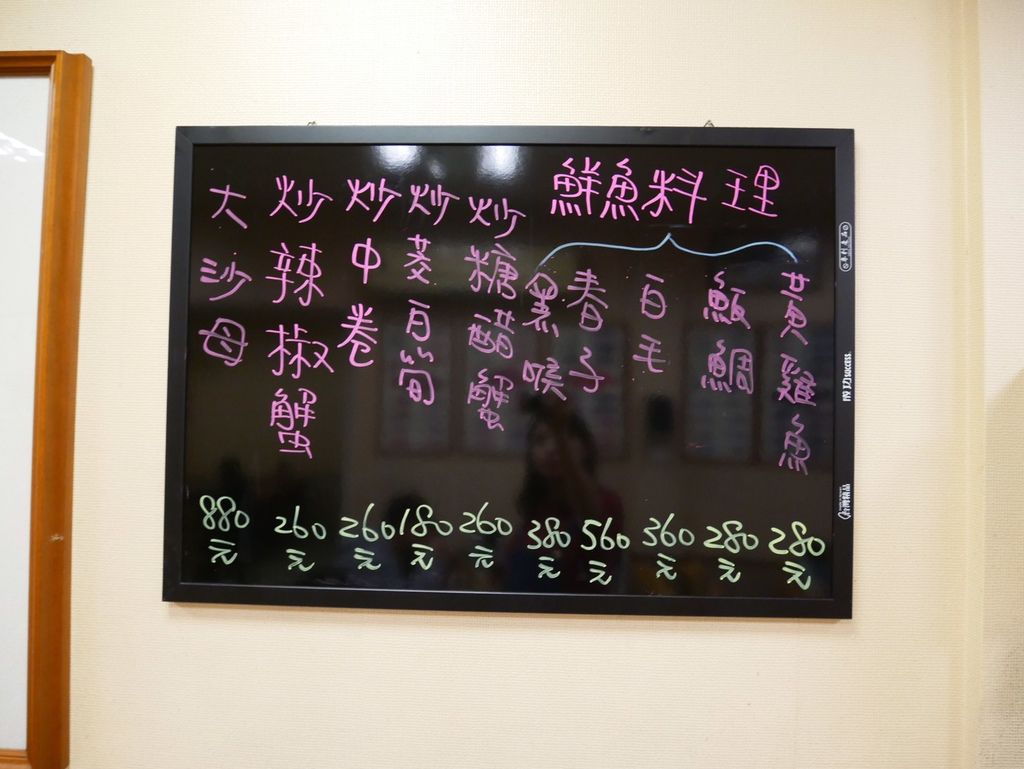 鮮魚料理
黃雞魚
280元
鮸鯛
280元
白毛
360元
春子
560元
黑喉
380元
炒糖醋蟹
260元
炒茭白筍
180元
炒中卷
260元
炒辣椒蟹
260元
大沙母
880元
成功success.